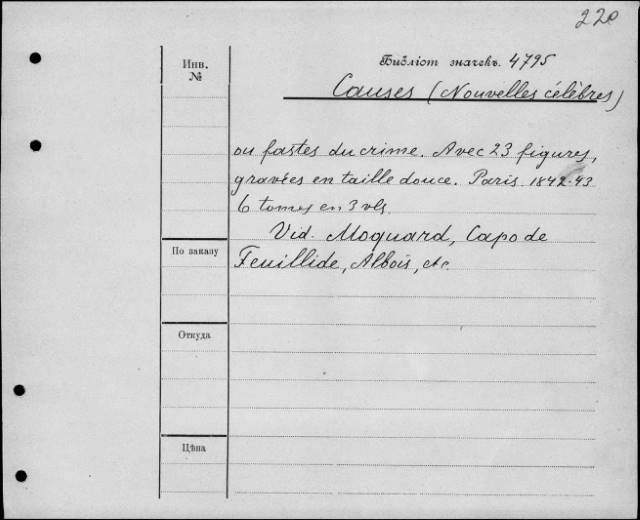 220
Инв.
№
Библіот значекъ. 4795
Causes (Nouvelles célèbres)
ou fastes du crime. Avec 23 figures,
gravées en taille douce. Paris 1842-43
6 tomes en 3 vls.
Vid. Moquard, Capo de
По заказу
Feuillide, Albois, etc.
Откуда
Цѣна